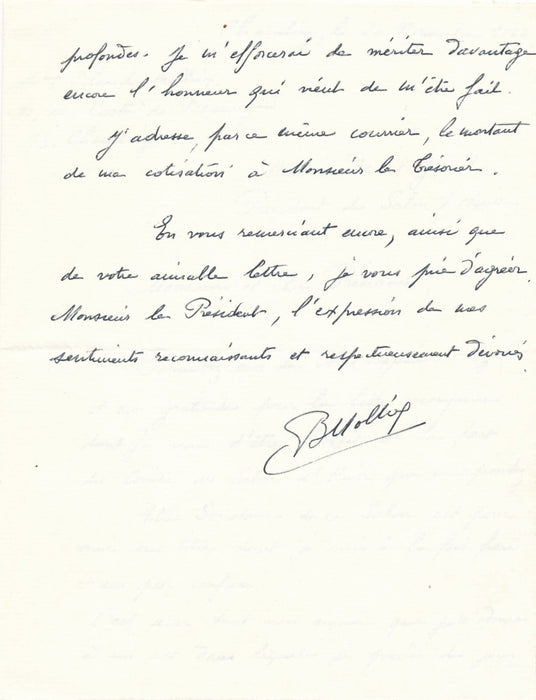 profondes. Je m'efforcerai de mériter davantage
encore l'honneur qui vient de m'être fait.
J'adresse, par ce même courrier, le montant
de ma cotisation à Monsieur le Trésorier.
En vous remerciant encore, ainsi que
de votre aimable lettre, je vous prie d'agréer,
Monsieur le Président, l'expression de mes
sentiments reconnaissants et respectueusement dévoués